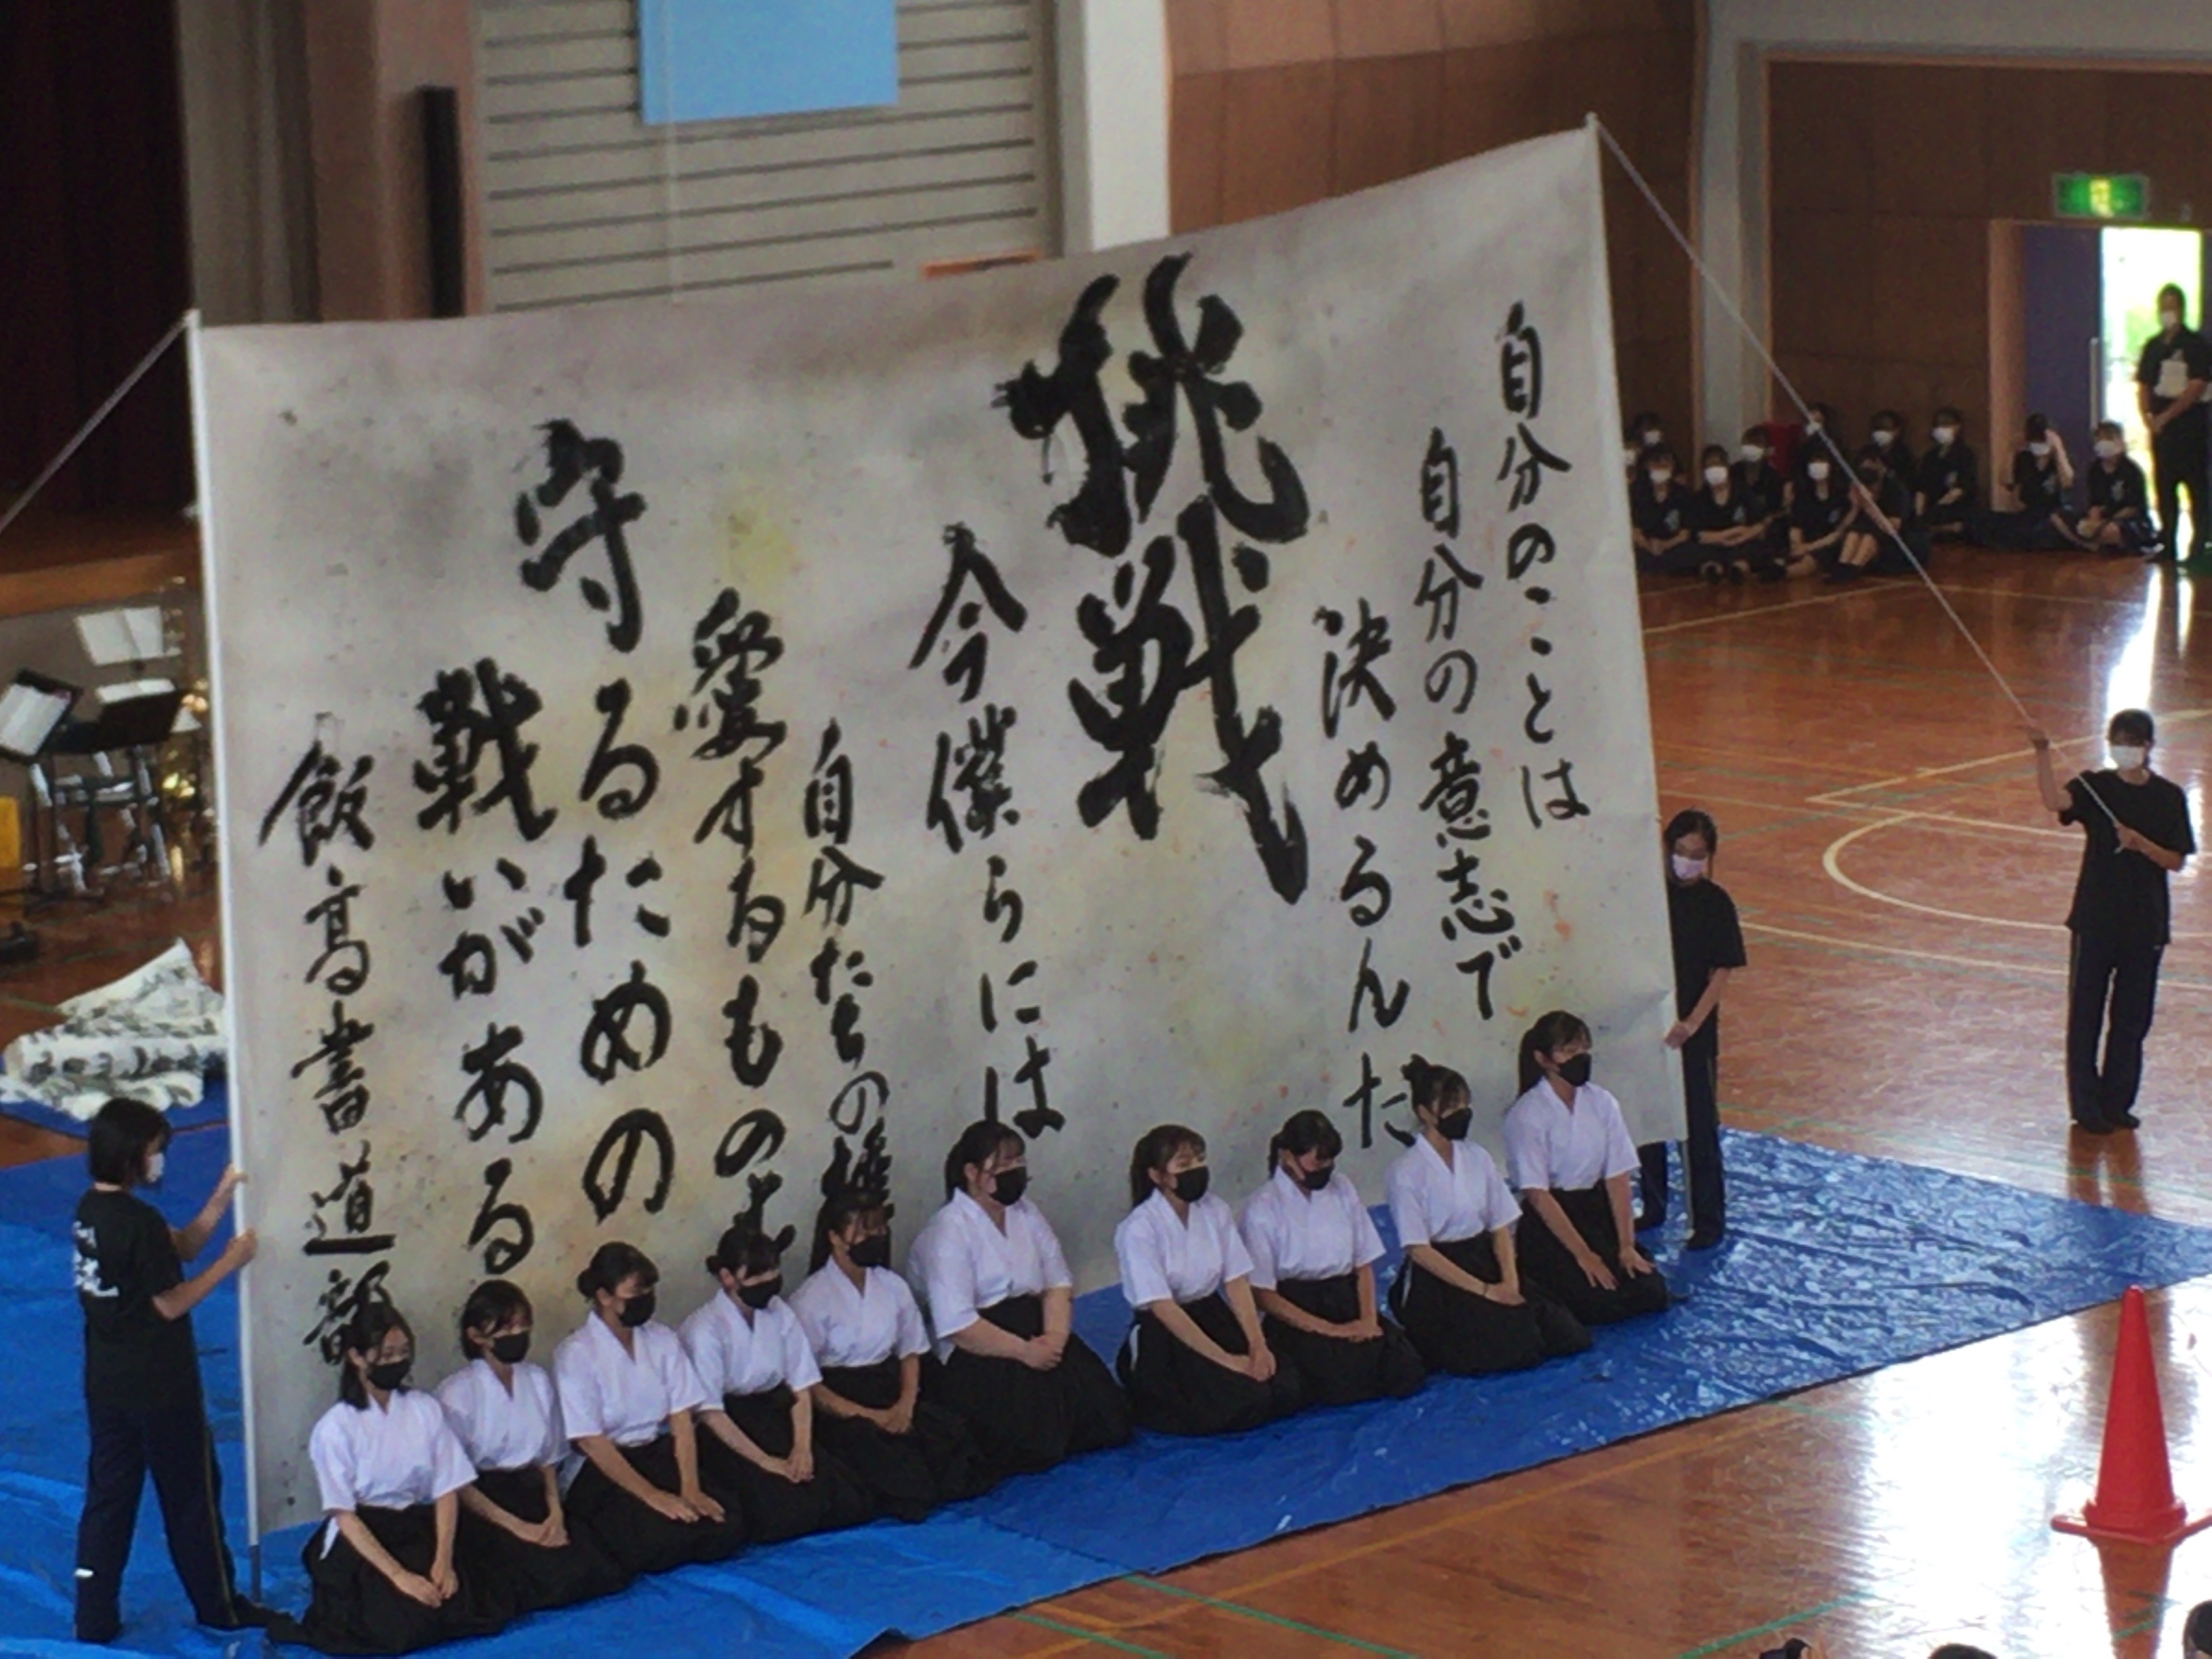 自分のことは
自分の意志で
決めるんだ
挑戦
今僕らには
自分たちの
愛するものの
守るための
戦いがある
飯高書道部